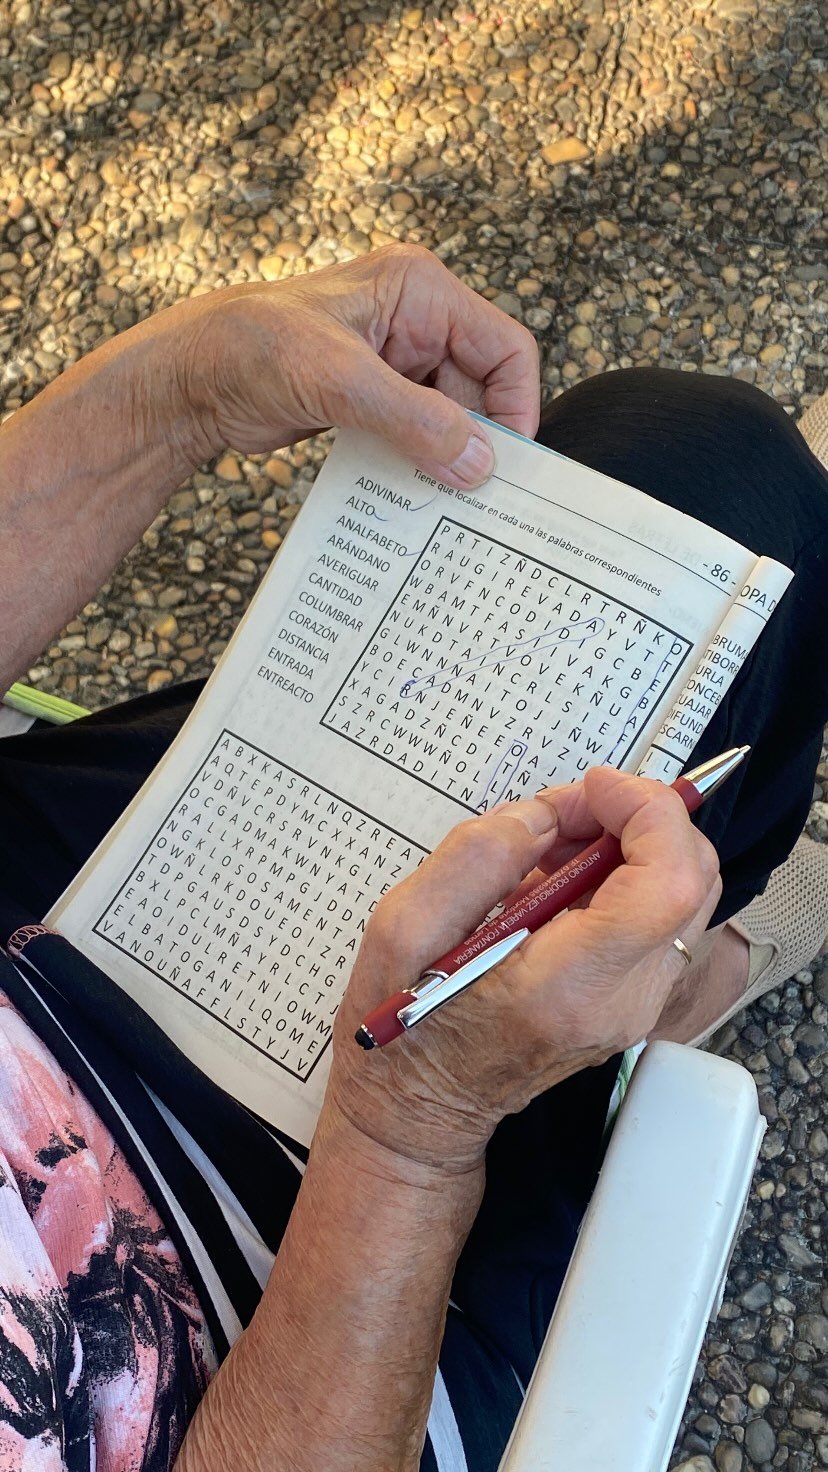 - 86 -
Tiene que localizar en cada una las palabras correspondientes
ADIVINAR
ALTO
ANALFABETO
ARÁNDANO
AVERIGUAR
CANTIDAD
COLUMBRAR
CORAZÓN
DISTANCIA
ENTRADA
ENTREACTO
P R T I Z Ñ D C L R T R Ñ K O
R A U G I R E V A D A Y V T T
O R V F N C O D I D I G C B E
W B A M T F A S I V A K G B
E M Ñ N V R T V O V E K Ñ U A
N U K D T A I N C R L S I E F
G L W N N N A I T O J J Ñ W L
B O E C A D M N V Z R V Z U
Y C I R N J E Ñ E E O A J
X A G A D Z Ñ C D I T Ñ Z
S Z R C W W W Ñ O L L M
J A Z R D A D I T N A
A B X K A S R L N Q Z R E A
A Q T E P D Y M C X X A N Z
V D Ñ V C R S R V N K G L E
O C G A D M A K W N Y A T D
R A L L X R P M P G J D D N
N G K L O S O S A M E N T A
O W Ñ L R K D O U E O I Z R
T D P G A U S D S Y D C H G
B X L P C L M Ñ A Y R L C T J
E A O I D U L R E T N I O W M
L B A T O G A N I L Q O M E
V A N O U Ñ A F F L S T Y J V
OPA D
BRUMA
TIBOR
URLA
ONCEB
UAJAR
DIFUND
SCARN
ANTONIO RODRIGUEZ VARELA FONTANERIA